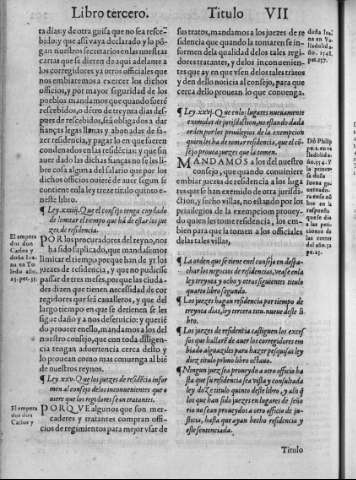 Libro tercero. Titulo VII
tra dias: y de otra guisa no sea resce-
bido: y que assi vaya declarado y lo pō-
gan nuestros secretarios en las nuestras
cartas que se dieren da aqui adelante
a los corregidores y otros officiales que
nos embiaremos a exercer los dichos
officios, y por mayor seguridad de de
los pueblos mandamos que quando fuere
rescebidos, o dētro de treynta dias des-
pues de rescebidos, seā obligados a dar
fianças legas llanas y abonadas de fa-
zer residencia, y pagar lo que fuerē
condenados en las residencias: y que sin
auer dado las dichas fianças no se les li-
bre cosa alguna del salario que por los
dichos officios ouierē de auer segun se
contiene en la ley treze titulo quinto de
este libro.
¶ Ley .xxiiij. Que el consejo tenga cuydado
de limitar el tiempo que hā de estar los jue-
zes de residencia.
POR los procuradores del reyno, nos
ha sido suplicado, que mandassemos
limitar el tiempo por que han de yr los
juezes de residencia, y que no pudiesse
passar de tres meses, por que las ciuda-
des dizen que tienen necessidad de cor
regidores que seā caualleros, y que del
largo tiempo en que se detienen se les
sigue daño y a nos deseruicio: y querie
do proueer en ello, mandamos a los del
nuestro consejo, que con toda diligen-
cia tengan aduertencia cerca dello y
lo prouean como mas conuenga al biē
de nuestros reynos.
¶ Ley .xxv. Que los juezes de residēcia infor
men al consejo de los inconuenientes que o
uiere que los regidores sean tratantes.
PORQVE algunos que son mer-
caderes y tratantes compran offi-
cios de regimientos para mejor vsar de
El empera
dor don
Carlos y
doña Iua
na en To
ledo año.
25. pet. 31.
El empera
dor don
Carlos y
sus tratos, mandamos a los juezes de re
sidencia que quando la tomaren se in-
formen de la qualidad de los tales regi-
dores tratantes, y de los inconuenien-
tes que ay en que vsen de los tales tratos
y den dello noticia al consejo, para que
cerca dello prouean lo que conuenga.
¶ Ley .xxvj. Que en los lugares nueuamente
exemidos de jurisdiction, no estando dada
orden por los priuilegios de la exempcion
quien les ha de tomar residencia, que el cō-
sejo prouea juezes que la tomen.
MANDAMOS a los del nuestro
consejo, que quando conuiniere
embiar juezes de residencia a los luga-
res que se han exemido de otra jurisdi-
ction, y fecho villas, no estando por los
priuilegios de la exempcion proueydo
quien les tome residencia, los embien,
para que la tomen a los officiales
de las tales villas,
¶ La orden que se tiene en el consejo en despa-
char los negocios de residencias, vease en la
ley treynta y ocho y otras siguientes titulo
quarto libro segundo.
¶ Los juezes hagan residencia por tiempo de
treynta dias, ley tercera titu. nueue deste li
bro.
¶ Los juezes de residencia castiguen los exces
sos que hallarē de auer los corregidores em
biado alguaziles para hazer pesquisas ley
diez titulo primo libro octauo.
¶ Ningun juez sea proueydo a otro officio ha
sta que su residencia sea vista y consultada
ley diez titulo quinto deste libro, y assi q̄
los que han sido juezes en lugares de señor
rio no sean proueydos a otro officio de ju-
sticia, hasta que ayan hecho residencia y
esté sentenciada.
Titulo
doña Iua
na en Va
lladolid
Dō Philip